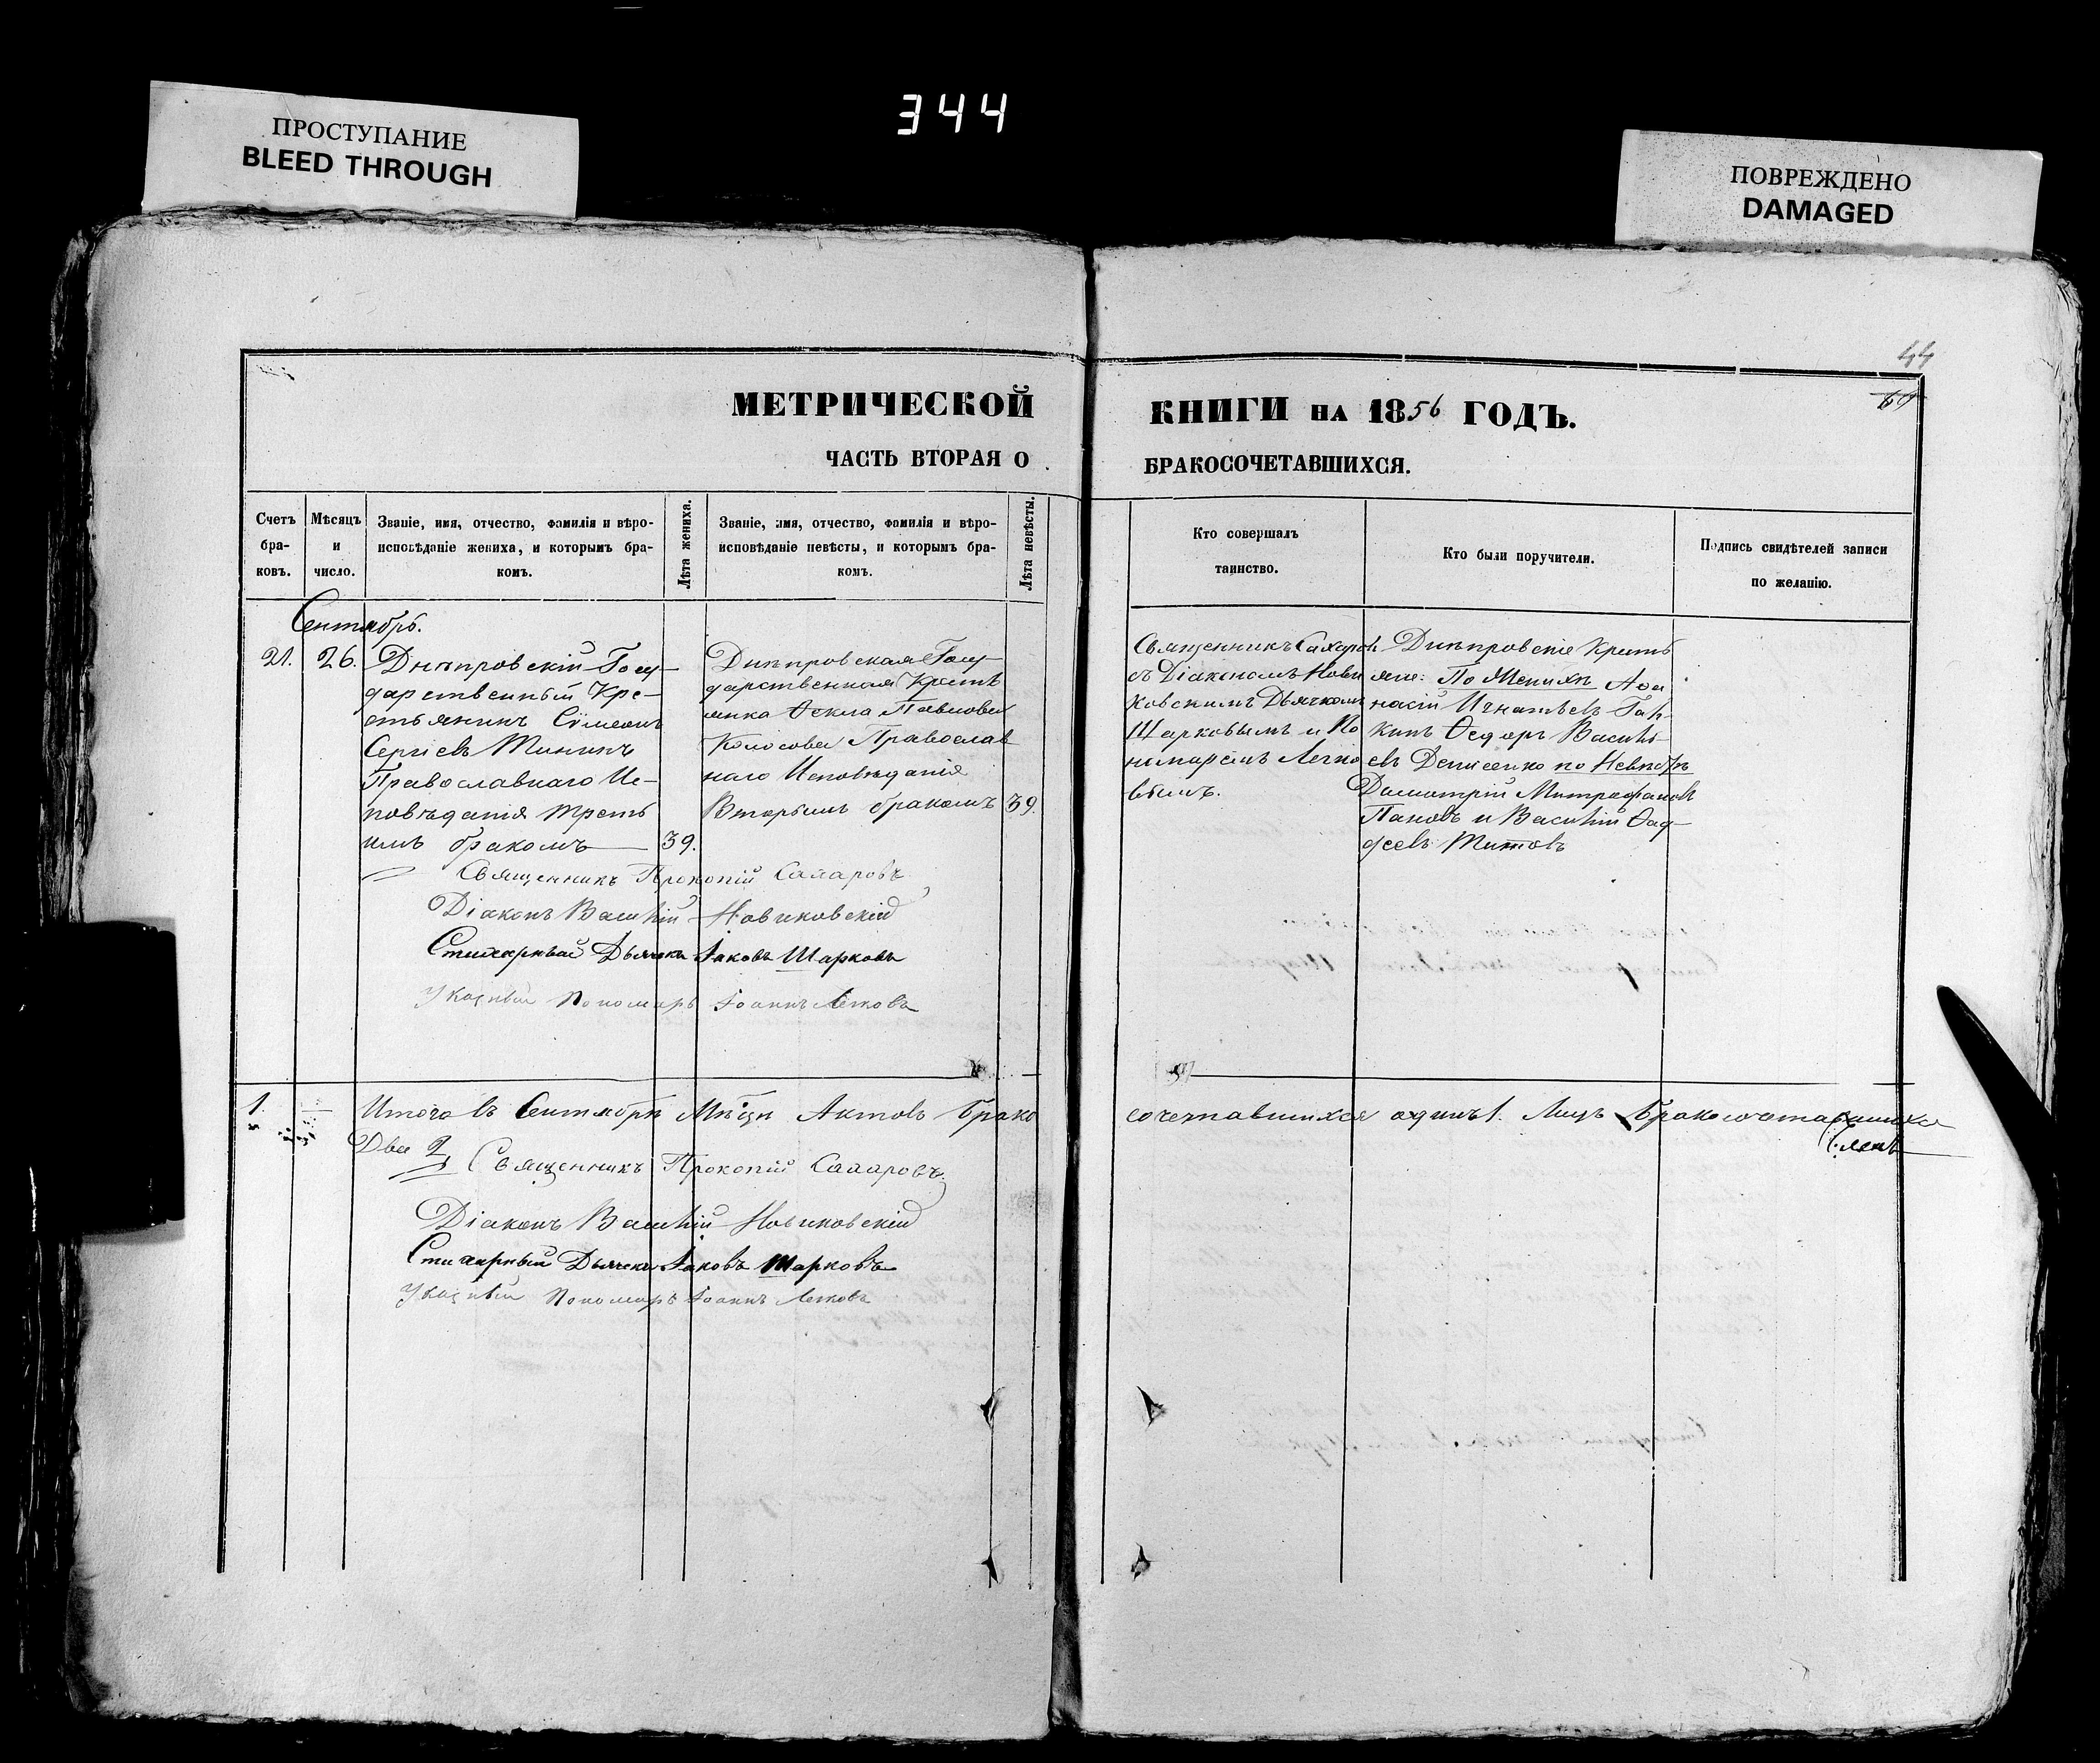 344
ПРОСТУПАНИЕ
BLEED THROUGH
ПОВРЕЖДЕНО
DAMAGED
44
МЕТРИЧЕСКОЙ КНИГИ НА 1856 ГОДЪ.
ЧАСТЬ ВТОРАЯ О БРАКОСОЧЕТАВШИХСЯ.
Счетъ
бра-
ковъ.
Мѣсяцъ
и
число.
Званіе, имя, отчество, фамилія и вѣро-
исповѣданіе жениха, и которымъ бра-
комъ.
Лѣта жениха.
Званіе, имя, отчество, фамилія и вѣро-
исповѣданіе невѣсты, и которымъ бра-
комъ.
Лѣта невѣсты.
Кто совершалъ
таинство.
Кто были поручители.
Подпись свидѣтелей записи
по желанію.
Сентябрь.
21.
26.
Днѣпровскій Госу-
дарственный Кре-
стьянинъ Сѵмеонъ
Сергіевъ Мининъ
Православнаго Ис-
повѣданія треть
имъ бракомъ
39.
Днѣпровская Госу-
дарственная Кресть
янка Ѳекла Павлова
Колосова Православ
наго Исповѣданія
Вторымъ бракомъ
39.
Священникъ Сахаровъ
съ Діакономъ Нови
ковскимъ Дьячкомъ
Шарковымъ и По
номаремъ Легко
вымъ.
Днѣпровскіе Кресть
яне: По Женихѣ Аѳа
насій Игнатьевъ
Ѳедоръ Василь
евъ Денисенко по Невѣстѣ
Димитрій Митрофановъ
Пановъ и Василій Ѳад
деевъ Титовъ
Священникъ Прокопій Сахаровъ
Діаконъ Василій Новиковскій
Стихарный Дьячекъ Іаковъ Шарковъ
Указный Пономарь Іоаннъ Легковъ
1.
Итого въ Сентябрѣ Мѣсцѣ Актовъ брако
сочетавшихся одинъ 1. Лицъ бракосочетавшихся
Два 2
Священникъ Прокопій Сахаровъ
Діаконъ Василій Новиковскій
Стихарный Дьячекъ Іаковъ Шарковъ
Указный Пономарь Іоаннъ Легковъ